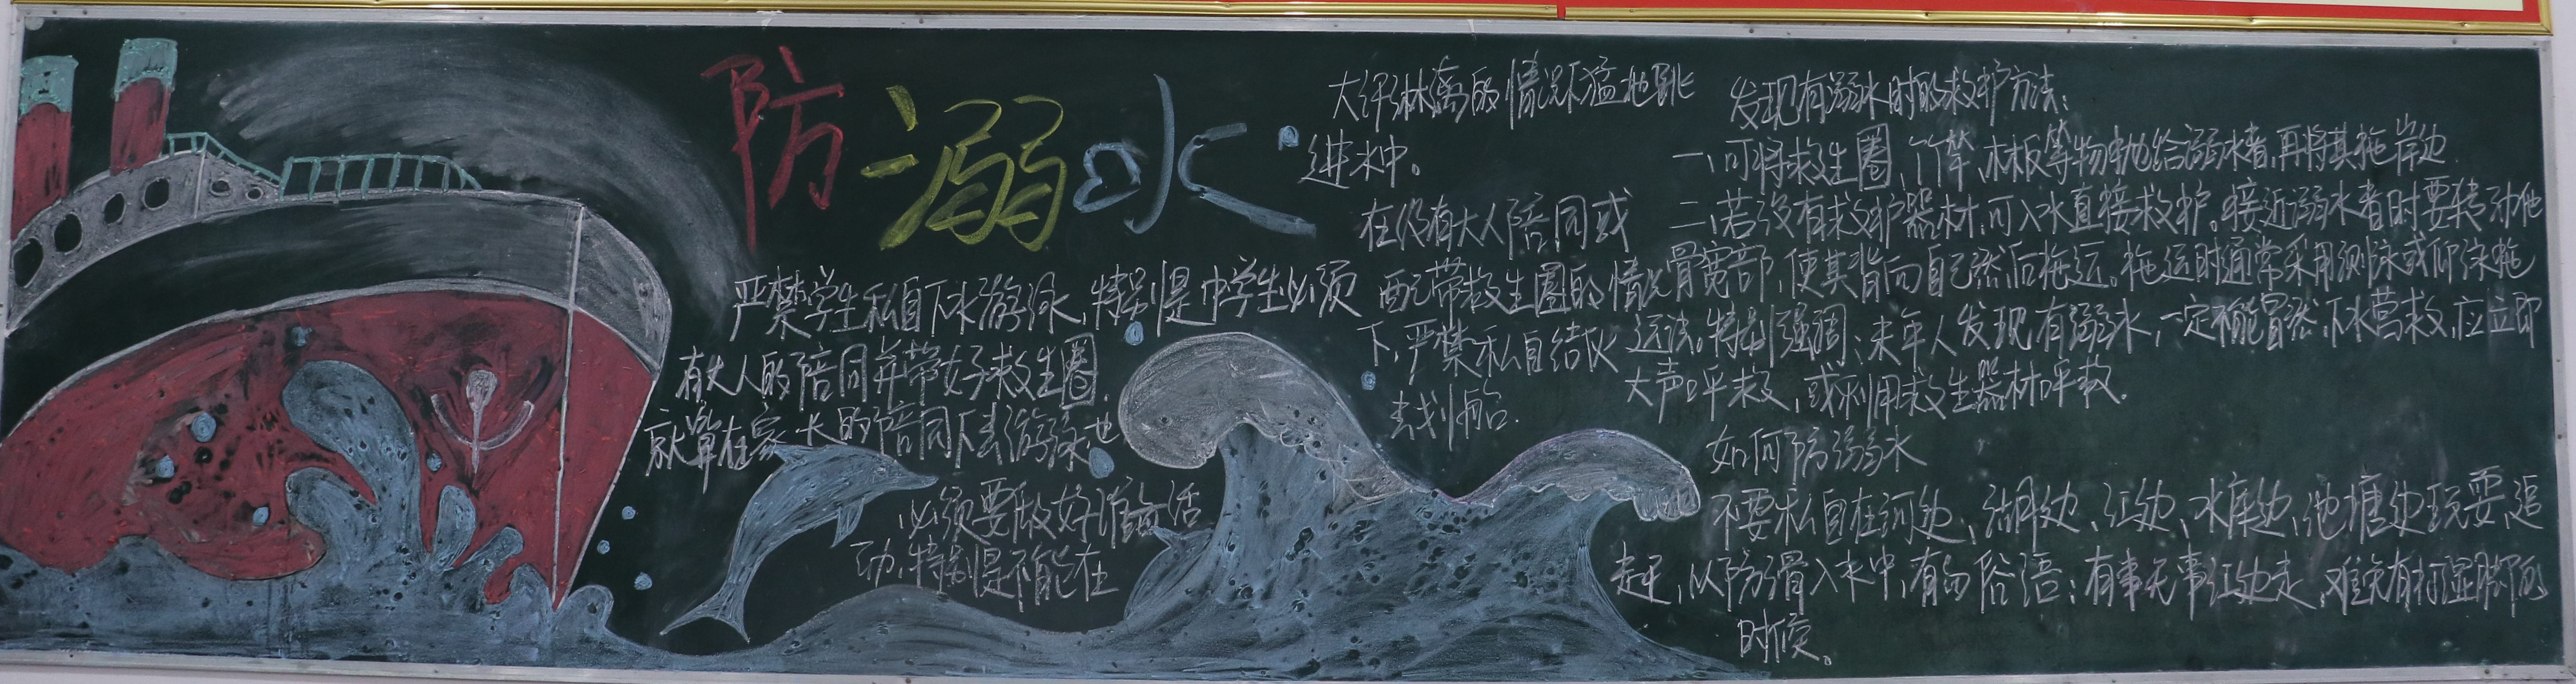 防溺水
严禁学生私自下水游泳,特别是中学生必须
有大人的陪同并带好救生圈,
就算在家长的陪同下去游泳也
必须要做好准备活
动,特别是不能在
大汗淋漓的情况下猛地跳
进水中。
在没有大人陪同或
配带救生圈的情况
下,严禁私自结伙
去划船.
发现有溺水时的救护方法:
一、可将救生圈、竹竿、木板等物抛给溺水者,再将其拖岸边.
二、若没有救护器材,可入水直接救护。接近溺水者时要转动他
骨宽部,使其背向自己然后拖运。拖运时通常采用侧泳或仰泳拖
运法。特别强调:未年人发现有溺水,一定不能冒然下水营救,应立即
大声呼救,或利用救生器材呼救.
如何防溺水
不要私自在河边、湖边、江边、水库边、池塘边玩耍、追
赶,以防滑入水中,有句俗语:有事无事江边走,难免有打湿脚的
时候。